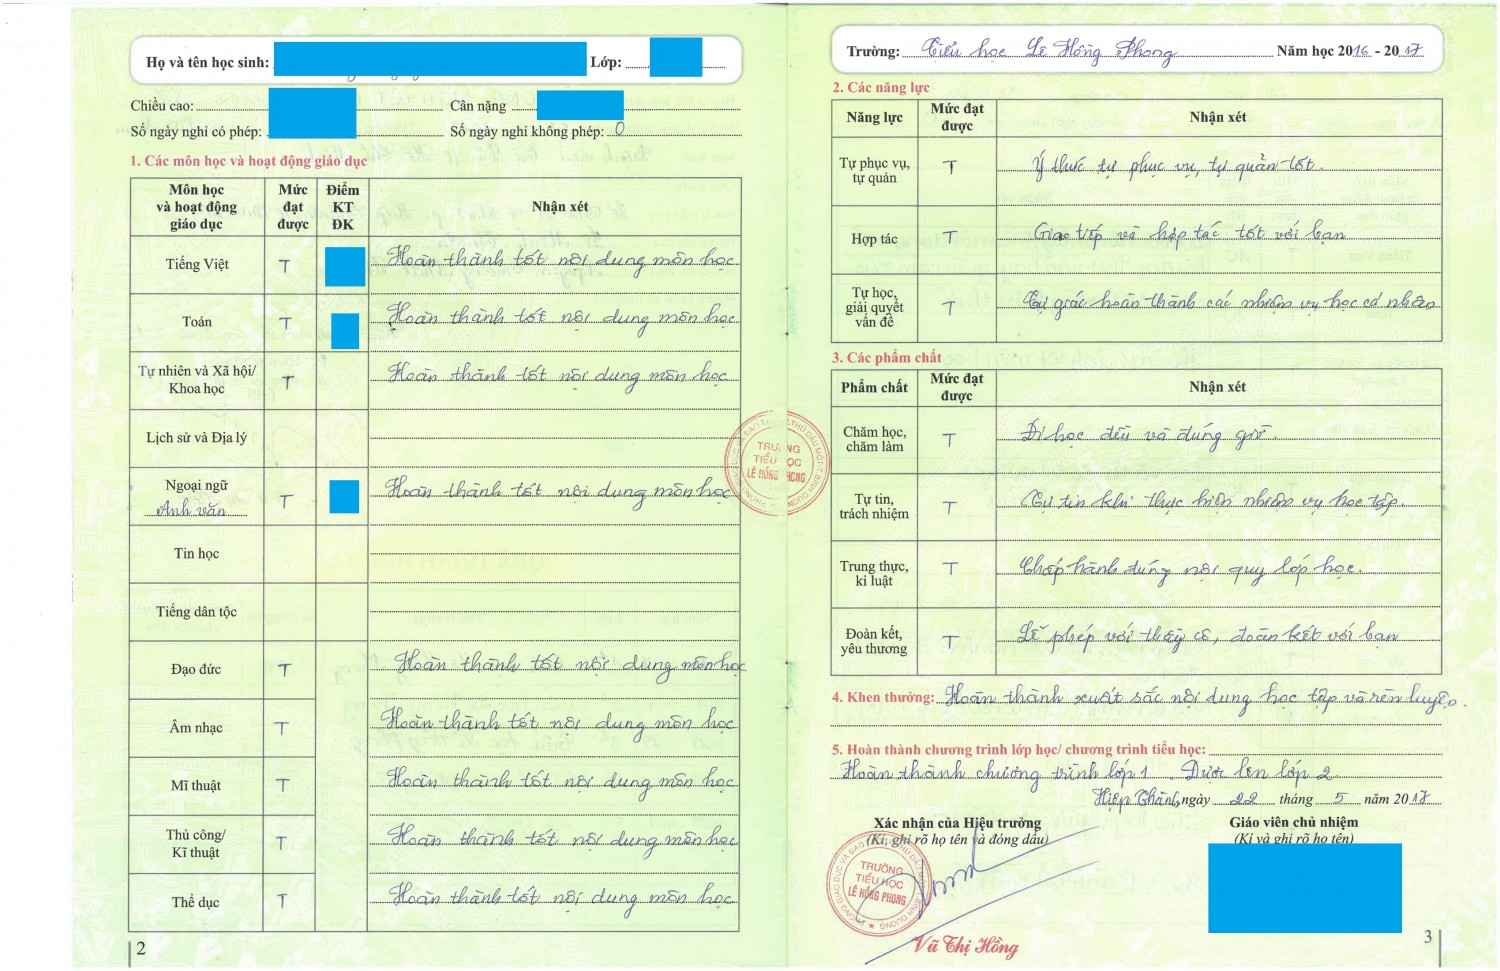 Họ và tên học sinh: Lớp:
Chiều cao: Cân nặng
Số ngày nghỉ có phép: Số ngày nghỉ không phép: 0
1. Các môn học và hoạt động giáo dục
Môn học và hoạt động giáo dục Mức đạt được Điểm KT ĐK Nhận xét
Tiếng Việt T Hoàn thành tốt nội dung môn học
Toán T Hoàn thành tốt nội dung môn học
Tự nhiên và Xã hội/ Khoa học T Hoàn thành tốt nội dung môn học
Lịch sử và Địa lý
Ngoại ngữ Anh văn T Hoàn thành tốt nội dung môn học
Tin học
Tiếng dân tộc
Đạo đức T Hoàn thành tốt nội dung môn học
Âm nhạc T Hoàn thành tốt nội dung môn học
Mĩ thuật T Hoàn thành tốt nội dung môn học
Thủ công/ Kĩ thuật T Hoàn thành tốt nội dung môn học
Thể dục T Hoàn thành tốt nội dung môn học
2
TRƯỜNG
TIỂU HỌC
LÊ HỒNG PHONG
Trường: Tiểu học Lê Hồng Phong Năm học 2016 - 2017
2. Các năng lực
Năng lực Mức đạt được Nhận xét
Tự phục vụ, tự quản T Ý thức tự phục vụ, tự quản tốt.
Hợp tác T Giao tiếp và hợp tác tốt với bạn
Tự học, giải quyết vấn đề T Tự giác hoàn thành các nhiệm vụ học cá nhân
3. Các phẩm chất
Phẩm chất Mức đạt được Nhận xét
Chăm học, chăm làm T Đi học đều và đúng giờ.
Tự tin, trách nhiệm T Tự tin khi thực hiện nhiệm vụ học tập.
Trung thực, kỉ luật T Chấp hành đúng nội quy lớp học.
Đoàn kết, yêu thương T Lễ phép với thầy cô, đoàn kết với bạn
4. Khen thưởng: Hoàn thành xuất sắc nội dung học tập và rèn luyện.
5. Hoàn thành chương trình lớp học/ chương trình tiểu học:
Hoàn thành chương trình lớp 1. Được lên lớp 2
Hiệp Thành, ngày 22 tháng 5 năm 2017
Xác nhận của Hiệu trưởng Giáo viên chủ nhiệm
(Kí, ghi rõ họ tên và đóng dấu) (Kí và ghi rõ họ tên)
TRƯỜNG
TIỂU HỌC
LÊ HỒNG PHONG
Vũ Thị Hồng
3